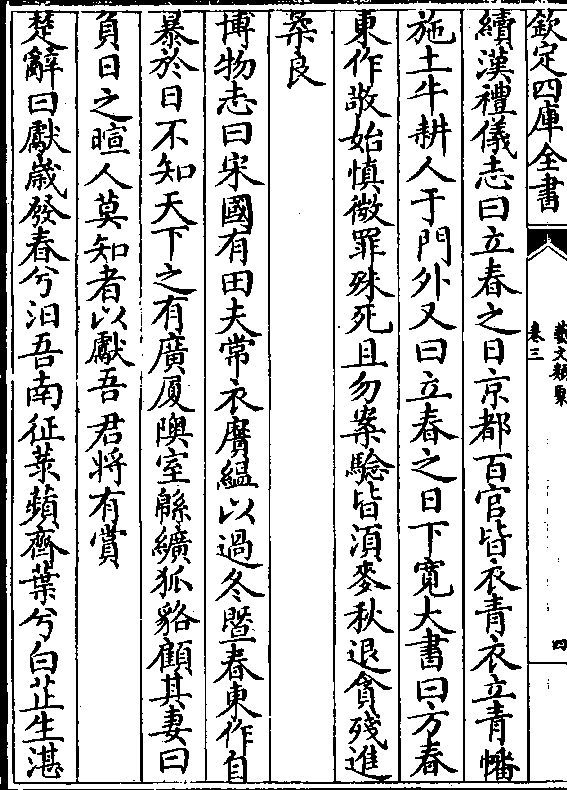 欽定四庫全書
藝文類聚
卷三
四
續漢禮儀志曰立春之日京都百官皆衣青衣立青幡
施土牛耕人于門外又曰立春之日下寬大書曰方春
東作敬始慎微罪殊死且勿案驗皆湏麥秋退貪殘進
柔良
博物志曰宋國有田夫常衣黂緼以過冬曁春東作自
暴於日不知天下之有廣厦隩室緜纊狐貉顧其妻曰
負日之暄人莫知者以獻吾君将有賞
楚辭曰獻嵗發春兮汨吾南征菉蘋齊葉兮白芷生湛